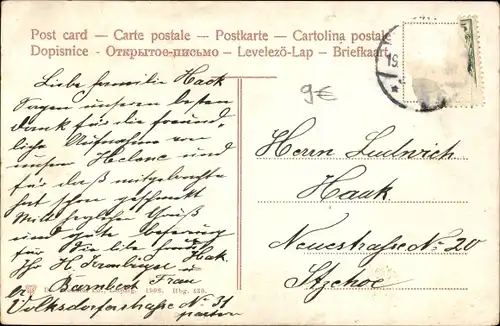 Post card – Carte postale – Postkarte – Cartolina postale
Dopisnice – Открытое-письмо – Levelező-Lap – Briefkaart
19
9€
Liebe Familie Hack
Sagen unseren besten
Dank für die freund,
liche Aufnahme von
unsern Helene und
für daß mitgebrachte
hat schon geschmeckt
Mit herzlichen Gruß
und gute
für Sie die
Ihr H.
Barmbeck Frau
Volksdorferstraße No 31
parten
Herrn Ludwich
Hauk
Neuestraße No 20
Itzehoe
Leipzig. 1908. Hbg. 425.